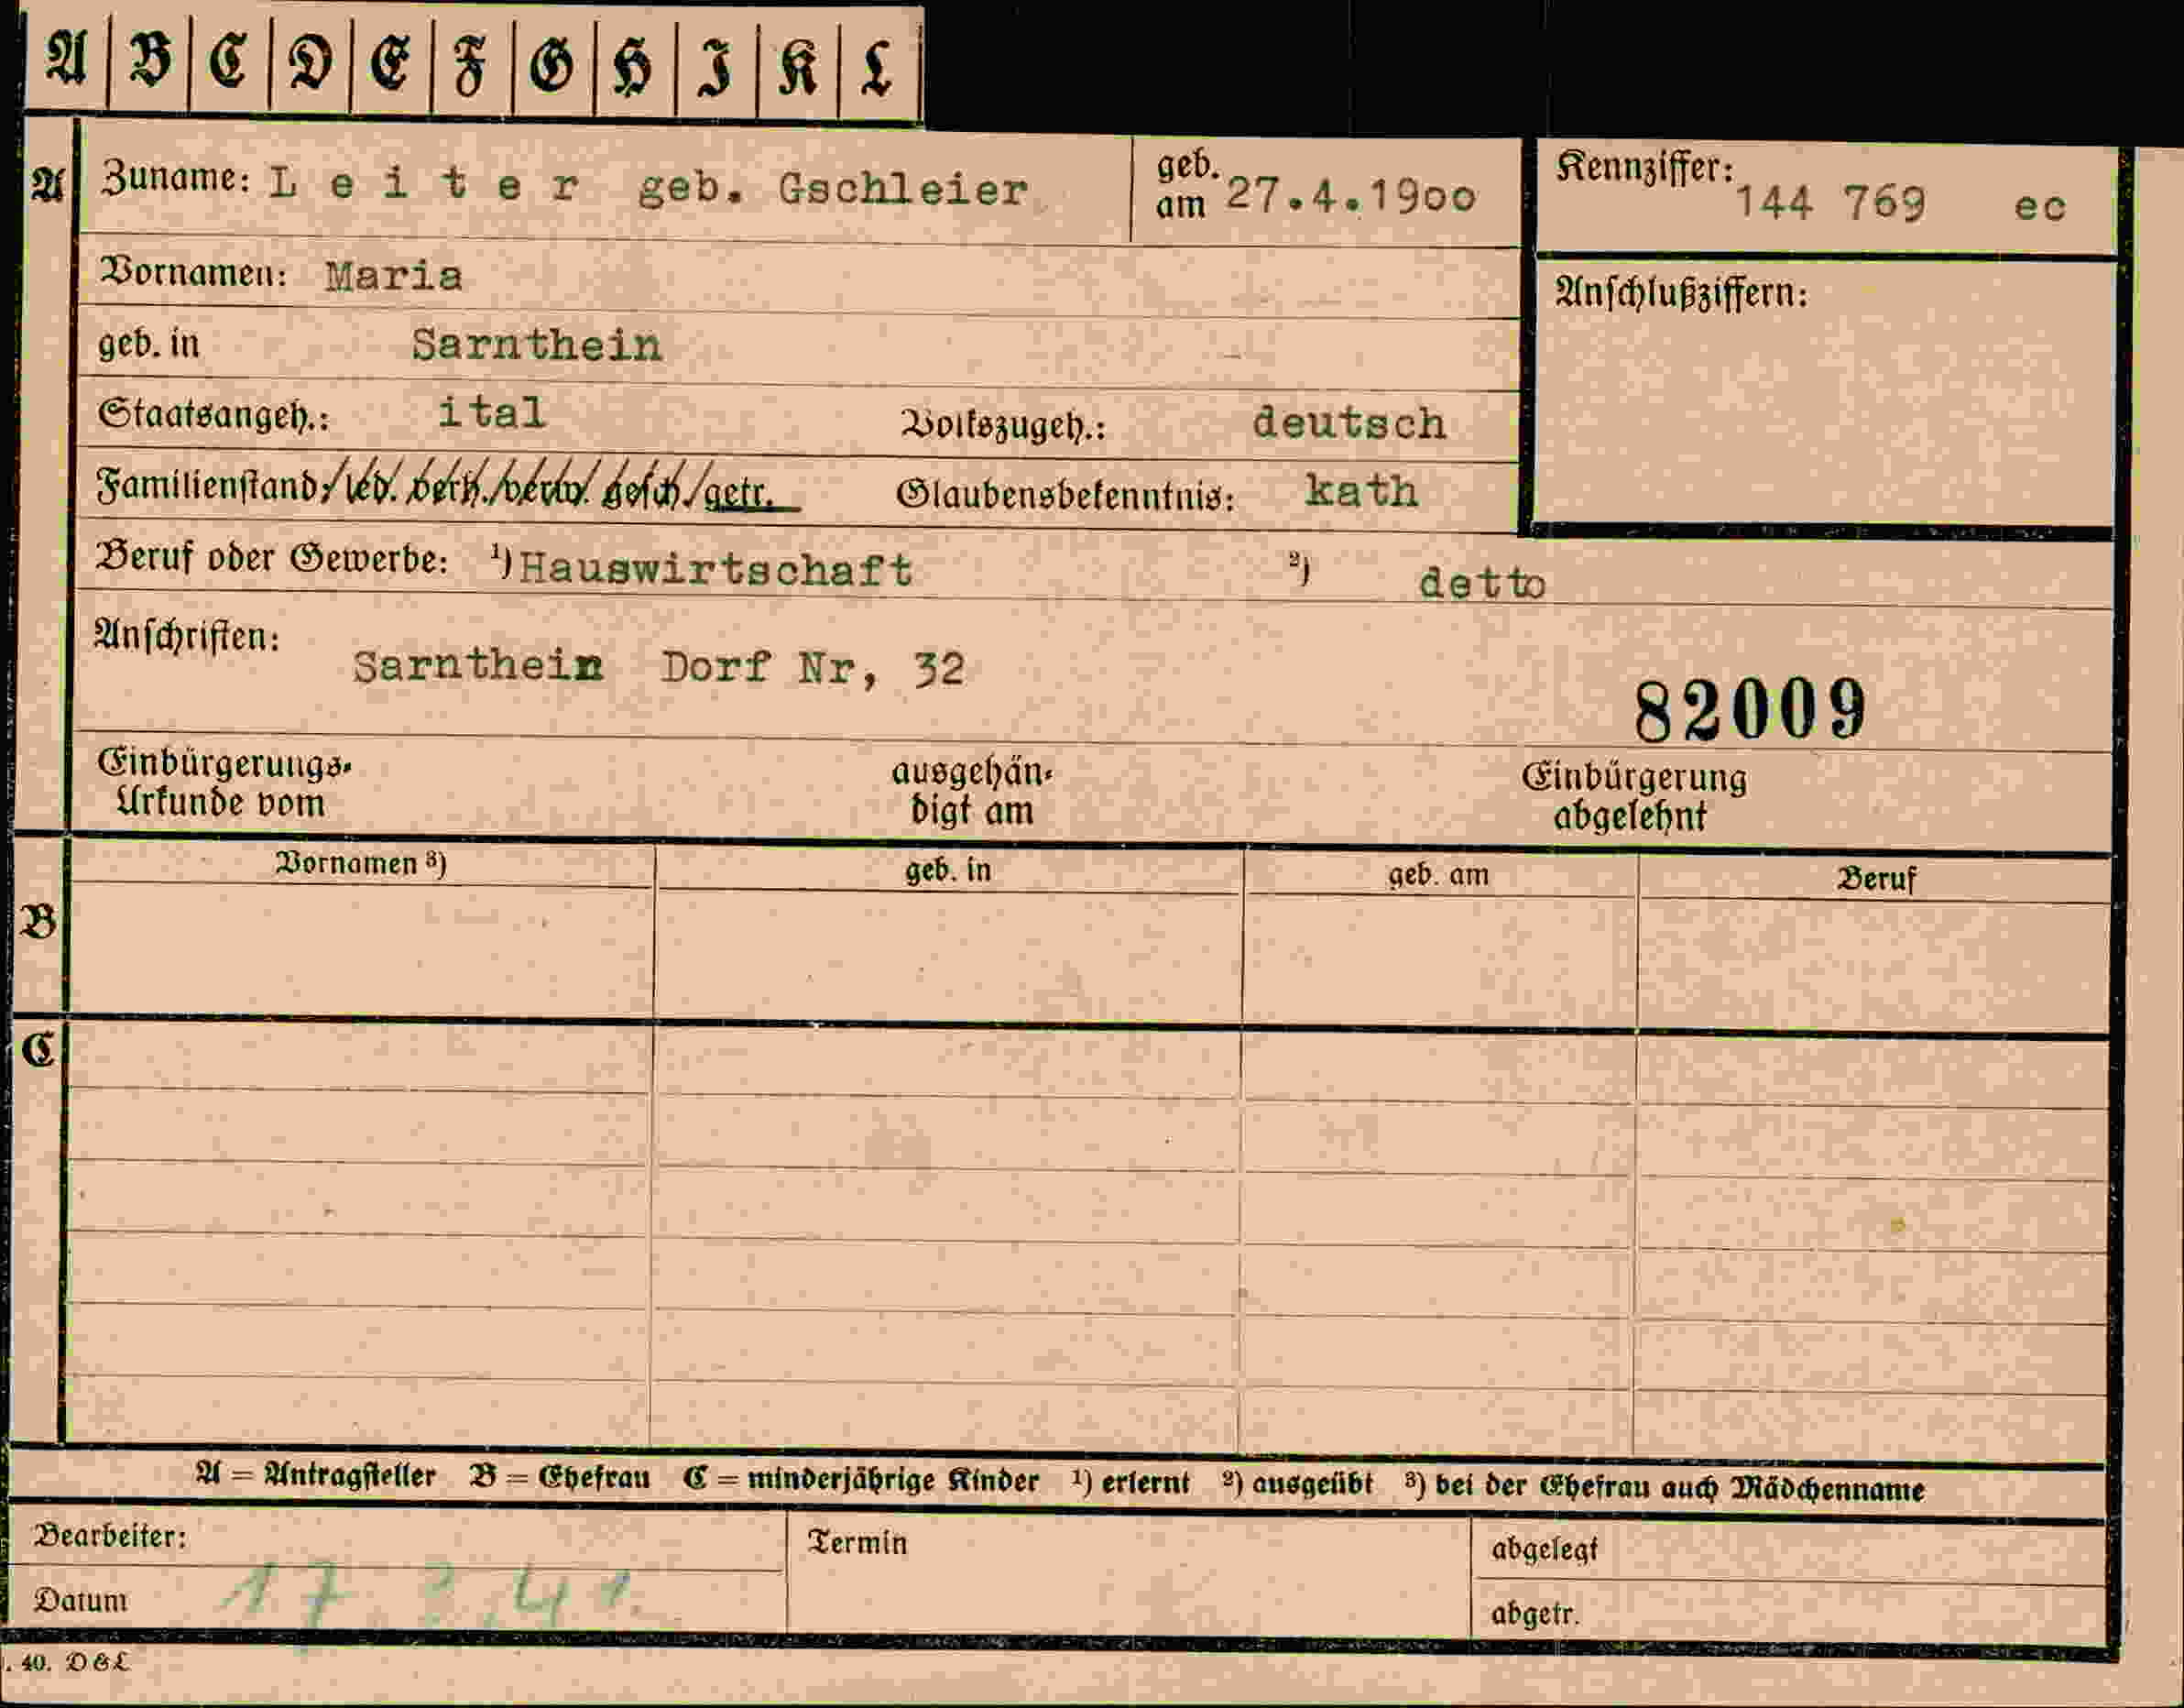 A B C D E F G H I K L
A Zuname: Leiter geb. Gschleier geb. am 27.4.1900 Kennziffer: 144 769 ec
Vornamen: Maria
Anschlußziffern:
geb. in Sarnthein
Staatsangeh.: ital Volkszugeh.: deutsch
Familienstand: led. verh. verw. gesch. getr. Glaubensbekenntnis: kath
Beruf oder Gewerbe: ¹) Hauswirtschaft ²) detto
Anschriften:
Sarnthein Dorf Nr, 32
82009
Einbürgerungs-
Urkunde vom
ausgehän-
digt am
Einbürgerung
abgelehnt
Vornamen ³) geb. in geb. am Beruf
B
C
A = Antragsteller B = Ehefrau C = minderjährige Kinder ¹) erlernt ²) ausgeübt ³) bei der Ehefrau auch Mädchenname
Bearbeiter: Termin abgelegt
Datum 17. .41. abgetr.
. 40. D & L